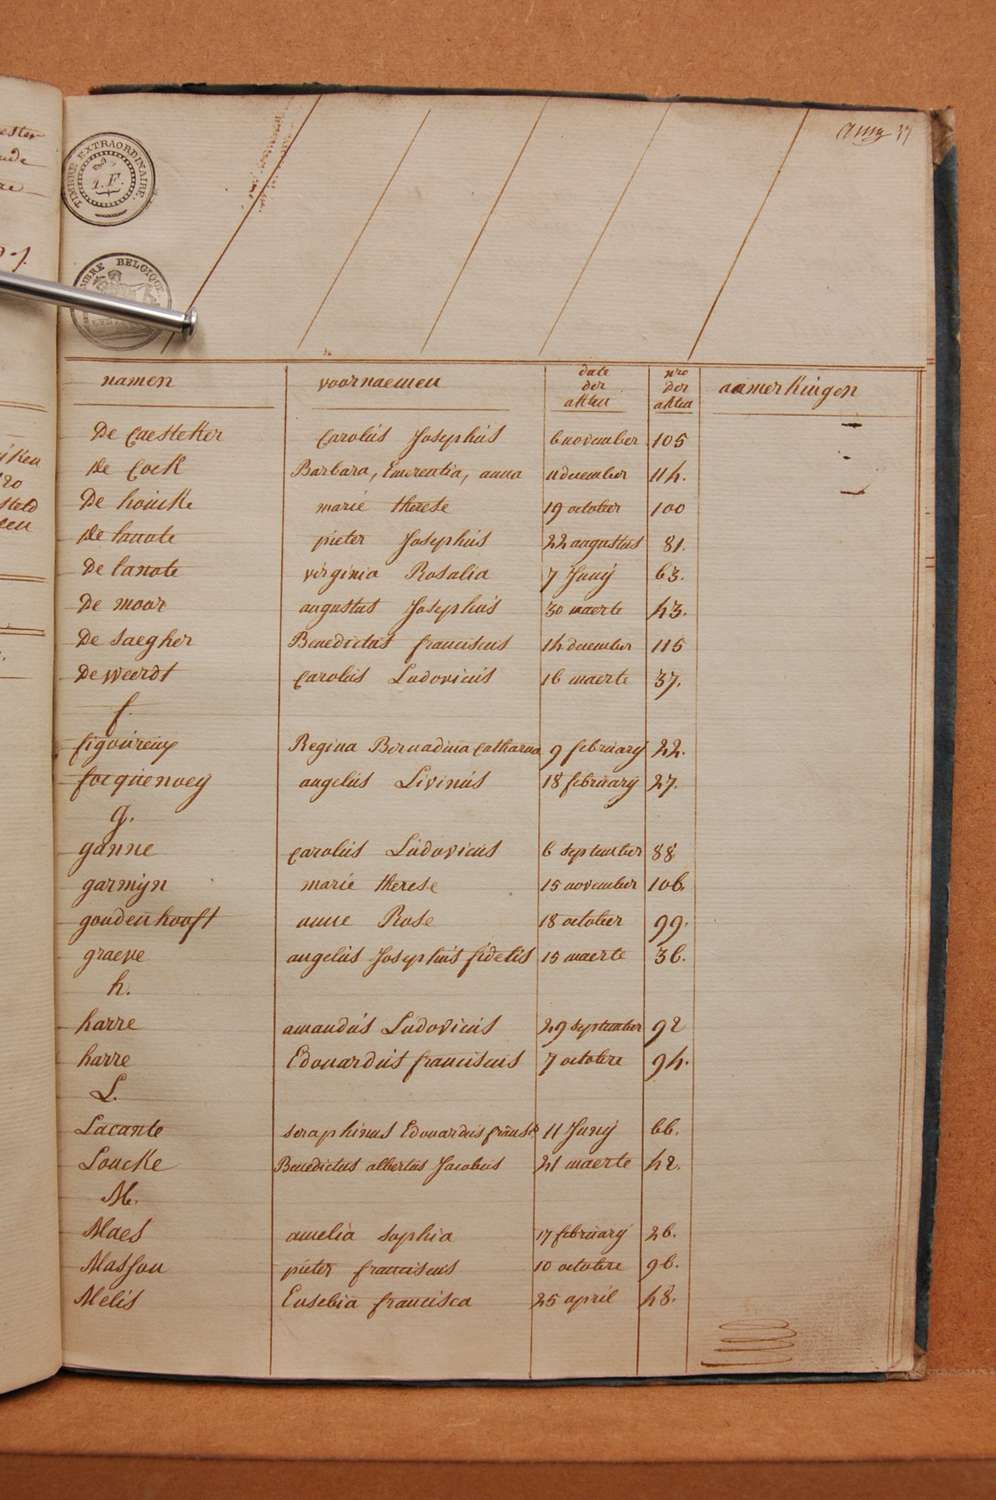 37
TIMBRE EXTRAORDINAIRE.
1.F.
TIMBRE BELGIQUE
namen voornaemen date der akten nro der akten aanmerkingen
De Caesteker Carolus Josephus 6 november 105
De Cock Barbara, Emerentia, anna 11 december 114.
De houcke marie therese 19 october 100
De lanote pieter Josephus 22 augustus 81.
De lanote virginia Rosalia 7 Junÿ 63.
De moor augustus Josephus 30 maerte 43.
De saegher Benedictus franciscus 14 december 115
De weerdt Carolus Ludovicus 16 maerte 37.
f.
figoureux Regina Bernadina Catharina 9 februarÿ 22.
focquenoey angelus Livinus 18 februarÿ 27.
g.
ganne Carolus Ludovicus 6 september 88
garmÿn marie therese 15 november 106.
goudenhooft anne Rose 18 october 99.
graeve angelus Josephus fidelis 15 maerte 36.
h.
harre amandus Ludovicus 29 september 92
harre Edouardus franciscus 7 octobre 94.
L.
Lacante seraphinus Edouardus 11 Junÿ 66.
Loucke Benedictus albertus Jacobus 21 maerte 42.
M.
Maes amelia sophia 17 februarÿ 26.
Massou pieter franciscus 10 octobre 96.
Melis Eusebia francisca 25 april 48.